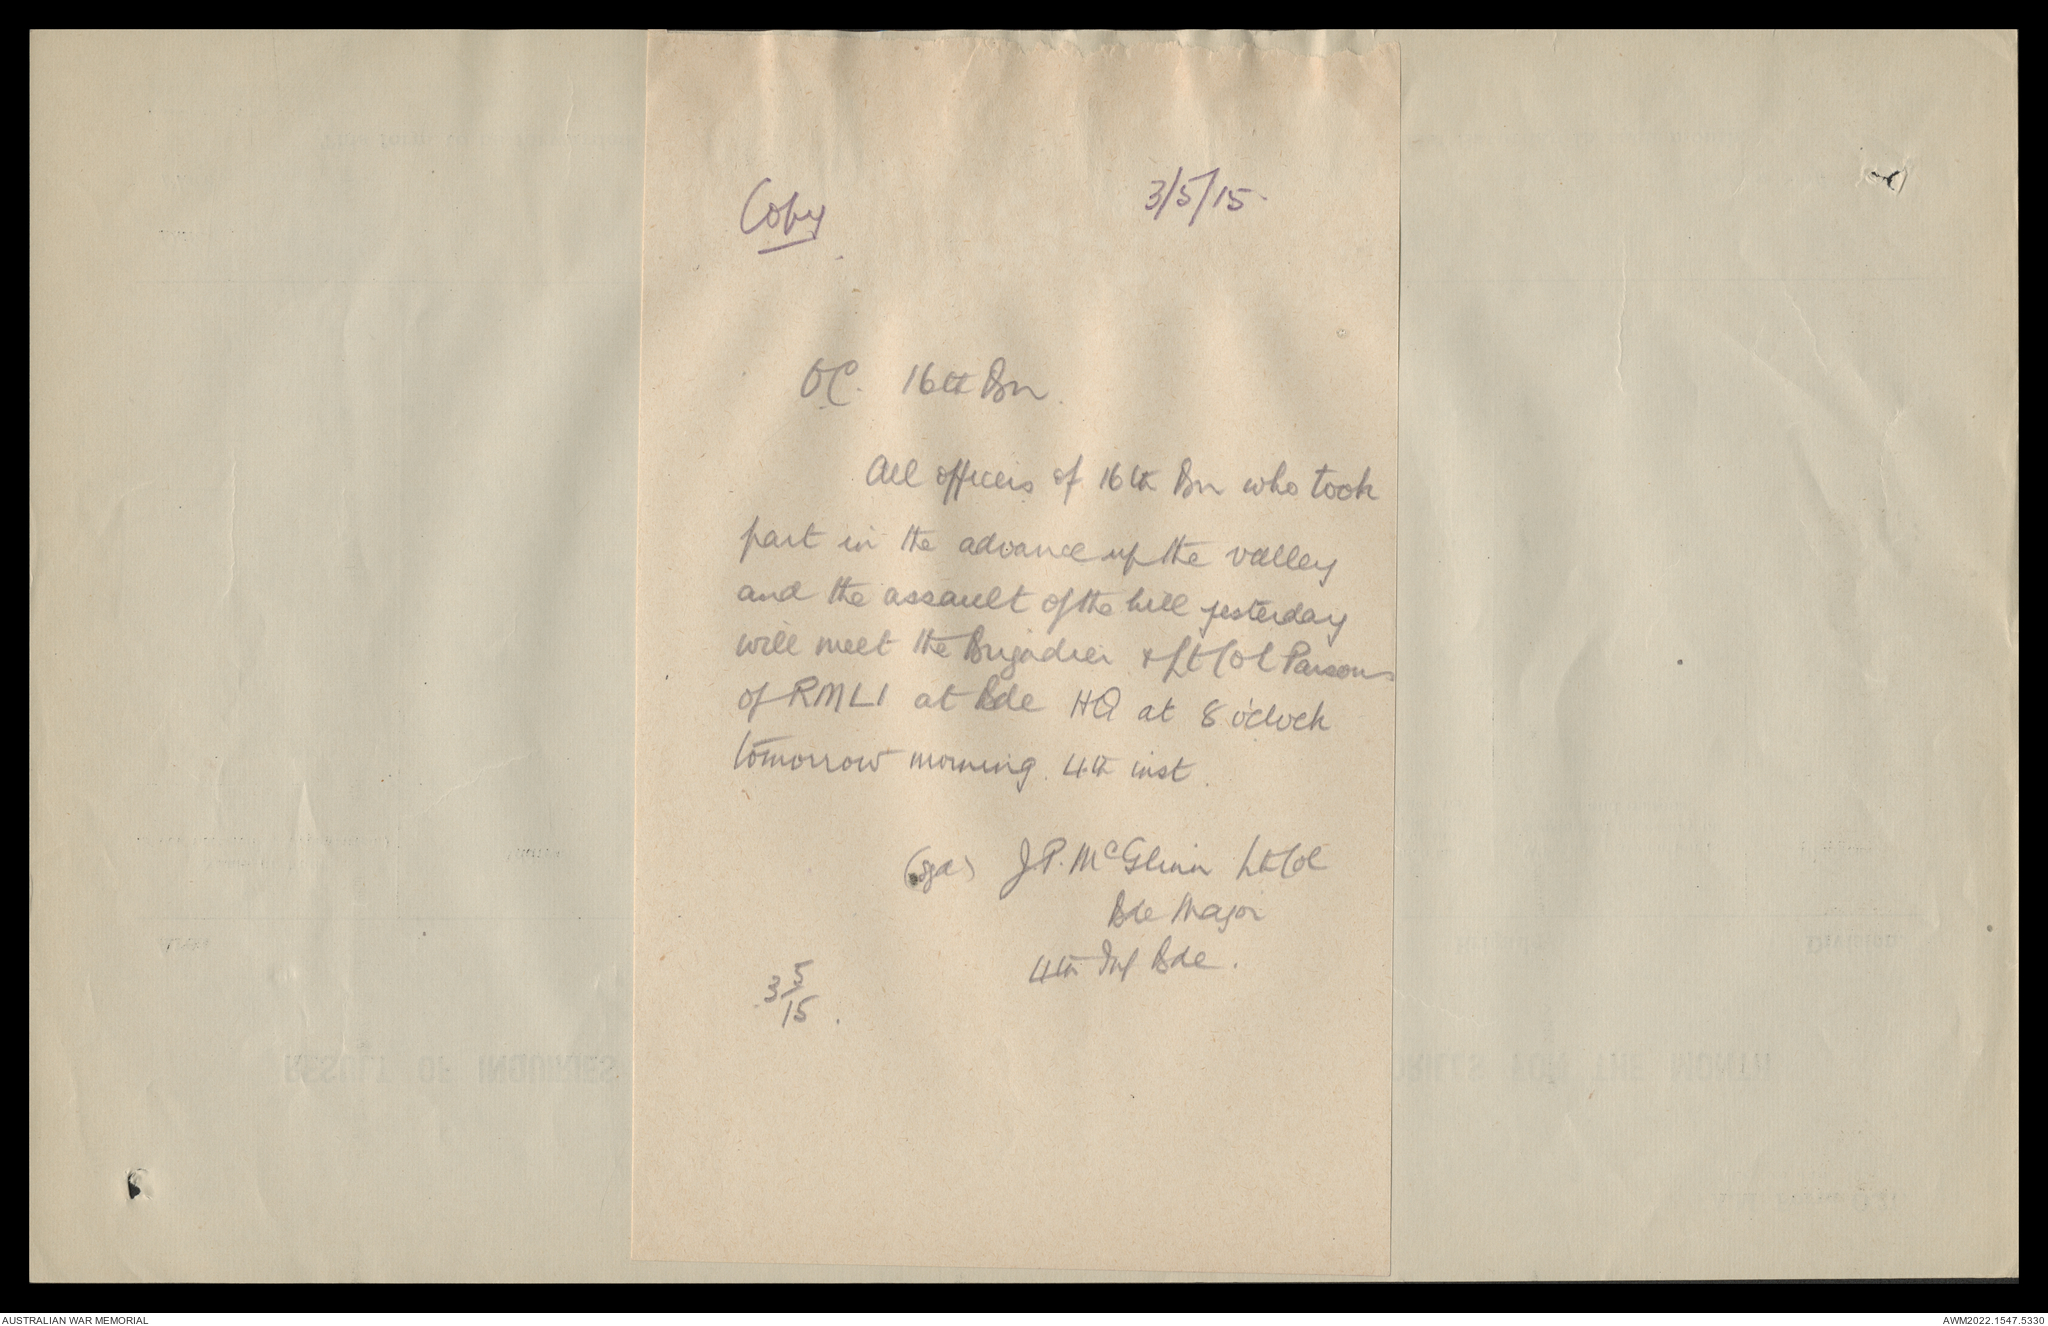 Copy
3/5/15.
OC. 16th Bn.
All officers of 16th Bn who took
part in the advance up the valley
and the assault of the hill yesterday
will meet the Brigadier & Lt Col Parsons
of RMLI at Bde HQ at 8 o'clock
tomorrow morning. 4th inst.
(sgd) J.P. McGlinn Lt Col
Bde Major
4th Inf Bde.
3 5/15.
RESULT OF INQUIRIES
FOR THE MONTH
AUSTRALIAN WAR MEMORIAL
AWM2022.1547.5330